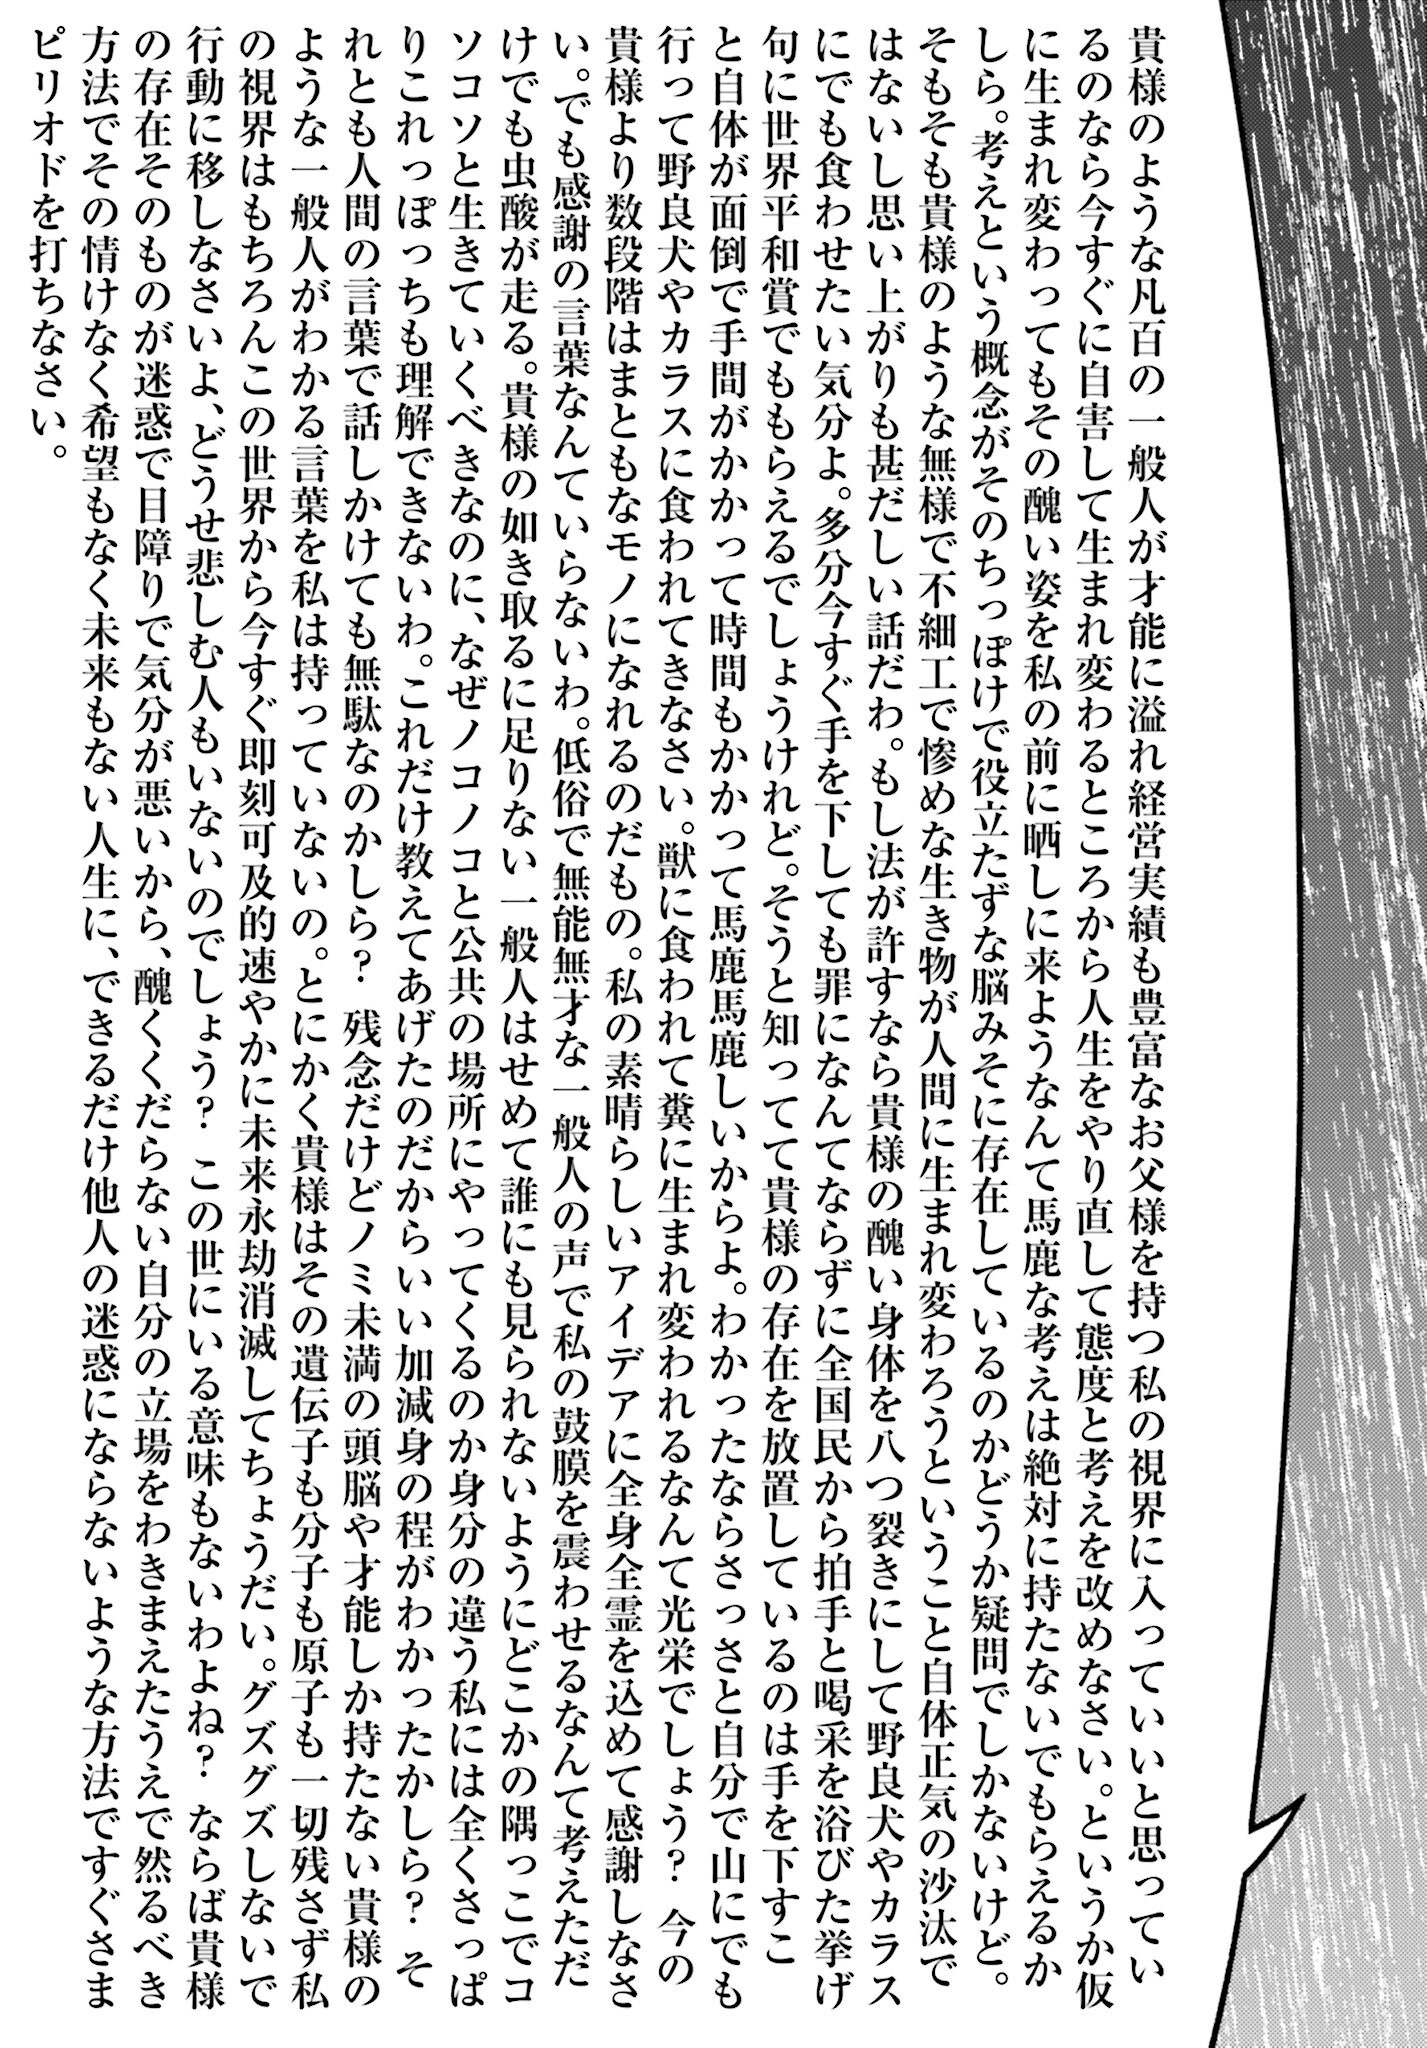 貴様のような凡百の一般人が才能に溢れ経営実績も豊富なお父様を持つ私の視界に入っていいと思ってい
るのなら今すぐに自害して生まれ変わるところから人生をやり直して態度と考えを改めなさい。というか仮
に生まれ変わってもその醜い姿を私の前に晒しに来ようなんて馬鹿な考えは絶対に持たないでもらえるか
しら。考えという概念がそのちっぽけで役立たずな脳みそに存在しているのかどうか疑問でしかないけど。
そもそも貴様のような無様で不細工で惨めな生き物が人間に生まれ変わろうということ自体正気の沙汰で
はないし思い上がりも甚だしい話だわ。もし法が許すなら貴様の醜い身体を八つ裂きにして野良犬やカラス
にでも食わせたい気分よ。多分今すぐ手を下しても罪になんてならずに全国民から拍手と喝采を浴びた挙げ
句に世界平和賞でももらえるでしょうけれど。そうと知ってて貴様の存在を放置しているのは手を下すこ
と自体が面倒で手間がかかって時間もかかって馬鹿馬鹿しいからよ。わかったならさっさと自分で山にでも
行って野良犬やカラスに食われてきなさい。獣に食われて糞に生まれ変われるなんて光栄でしょう？　今の
貴様より数段階はまともなモノになれるのだもの。私の素晴らしいアイデアに全身全霊を込めて感謝しなさ
い。でも感謝の言葉なんていらないわ。低俗で無能無才な一般人の声で私の鼓膜を震わせるなんて考えただ
けでも虫酸が走る。貴様の如き取るに足りない一般人はせめて誰にも見られないようにどこかの隅っこでコ
ソコソと生きていくべきなのに、なぜノコノコと公共の場所にやってくるのか身分の違う私には全くさっぱ
りこれっぽっちも理解できないわ。これだけ教えてあげたのだからいい加減身の程がわかったかしら？　そ
れとも人間の言葉で話しかけても無駄なのかしら？　残念だけどノミ未満の頭脳や才能しか持たない貴様の
ような一般人がわかる言葉を私は持っていないの。とにかく貴様はその遺伝子も分子も原子も一切残さず私
の視界はもちろんこの世界から今すぐ即刻可及的速やかに未来永劫消滅してちょうだい。グズグズしないで
行動に移しなさいよ、どうせ悲しむ人もいないのでしょう？　この世にいる意味もないわよね？　ならば貴様
の存在そのものが迷惑で目障りで気分が悪いから、醜くくだらない自分の立場をわきまえたうえで然るべき
方法でその情けなく希望もなく未来もない人生に、できるだけ他人の迷惑にならないような方法ですぐさま
ピリオドを打ちなさい。